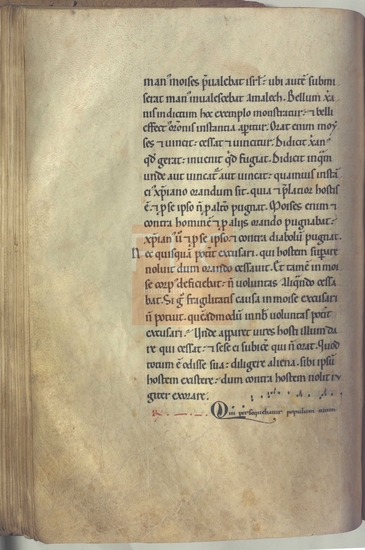 man' moises p̄ualebat isrl'. ubi aute᷒ submi
serat man' inualescebat amalech. Bellum x̄a
nis indictum hoc exemplo monstratur. & belli
effect' or̄onis instantia ap̄itur. Orat enim moy
ses & uincit. cessat & uincitur. Didicit x̄an'
qd̄ gerat. inuenit qd̄ fugiat. Didicit inq̄m
unde aut uincat aut uincat. quamuis instā
ci xp̄iano orandum sit. quia & p̄lator hostis
ē. & p̄ se ipso n̄ p̄ alto pugnat. Moises enim &
contra hominē & p̄ aliis orando pugnabat.
xp̄ian' ū & p̄ se ipso & contra diabolū pugnat.
Nec quisquā potit excusari. qui hostem sup̄are
noluit dum orando cessauit. Et tam̄ in moi
se corp' deficiebat. n̄ uoluntas. Aliqn̄do cessa
bat. Si g' fragilitatis causa in moise excusari
n̄ potuit. quē admodū in nob' uoluntas potit
excusari. Unde apparet uires hosti illum da
re qui cessat. & sese ei subicē qui n̄ orat. Quod
totum ē odisse sua. diligere aliena. sibi ipsū
hostem existere. dum contra hostem nolit ix
giter exorare.
Qui persequebatur populum